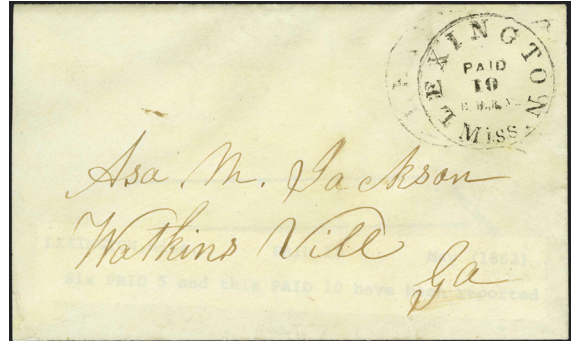 LEXINGTON
PAID
10
Miss
Asa M. Jackson
Watkins Vill
Ga
(1862)
Six PAID 5 and this PAID 10 have been reported